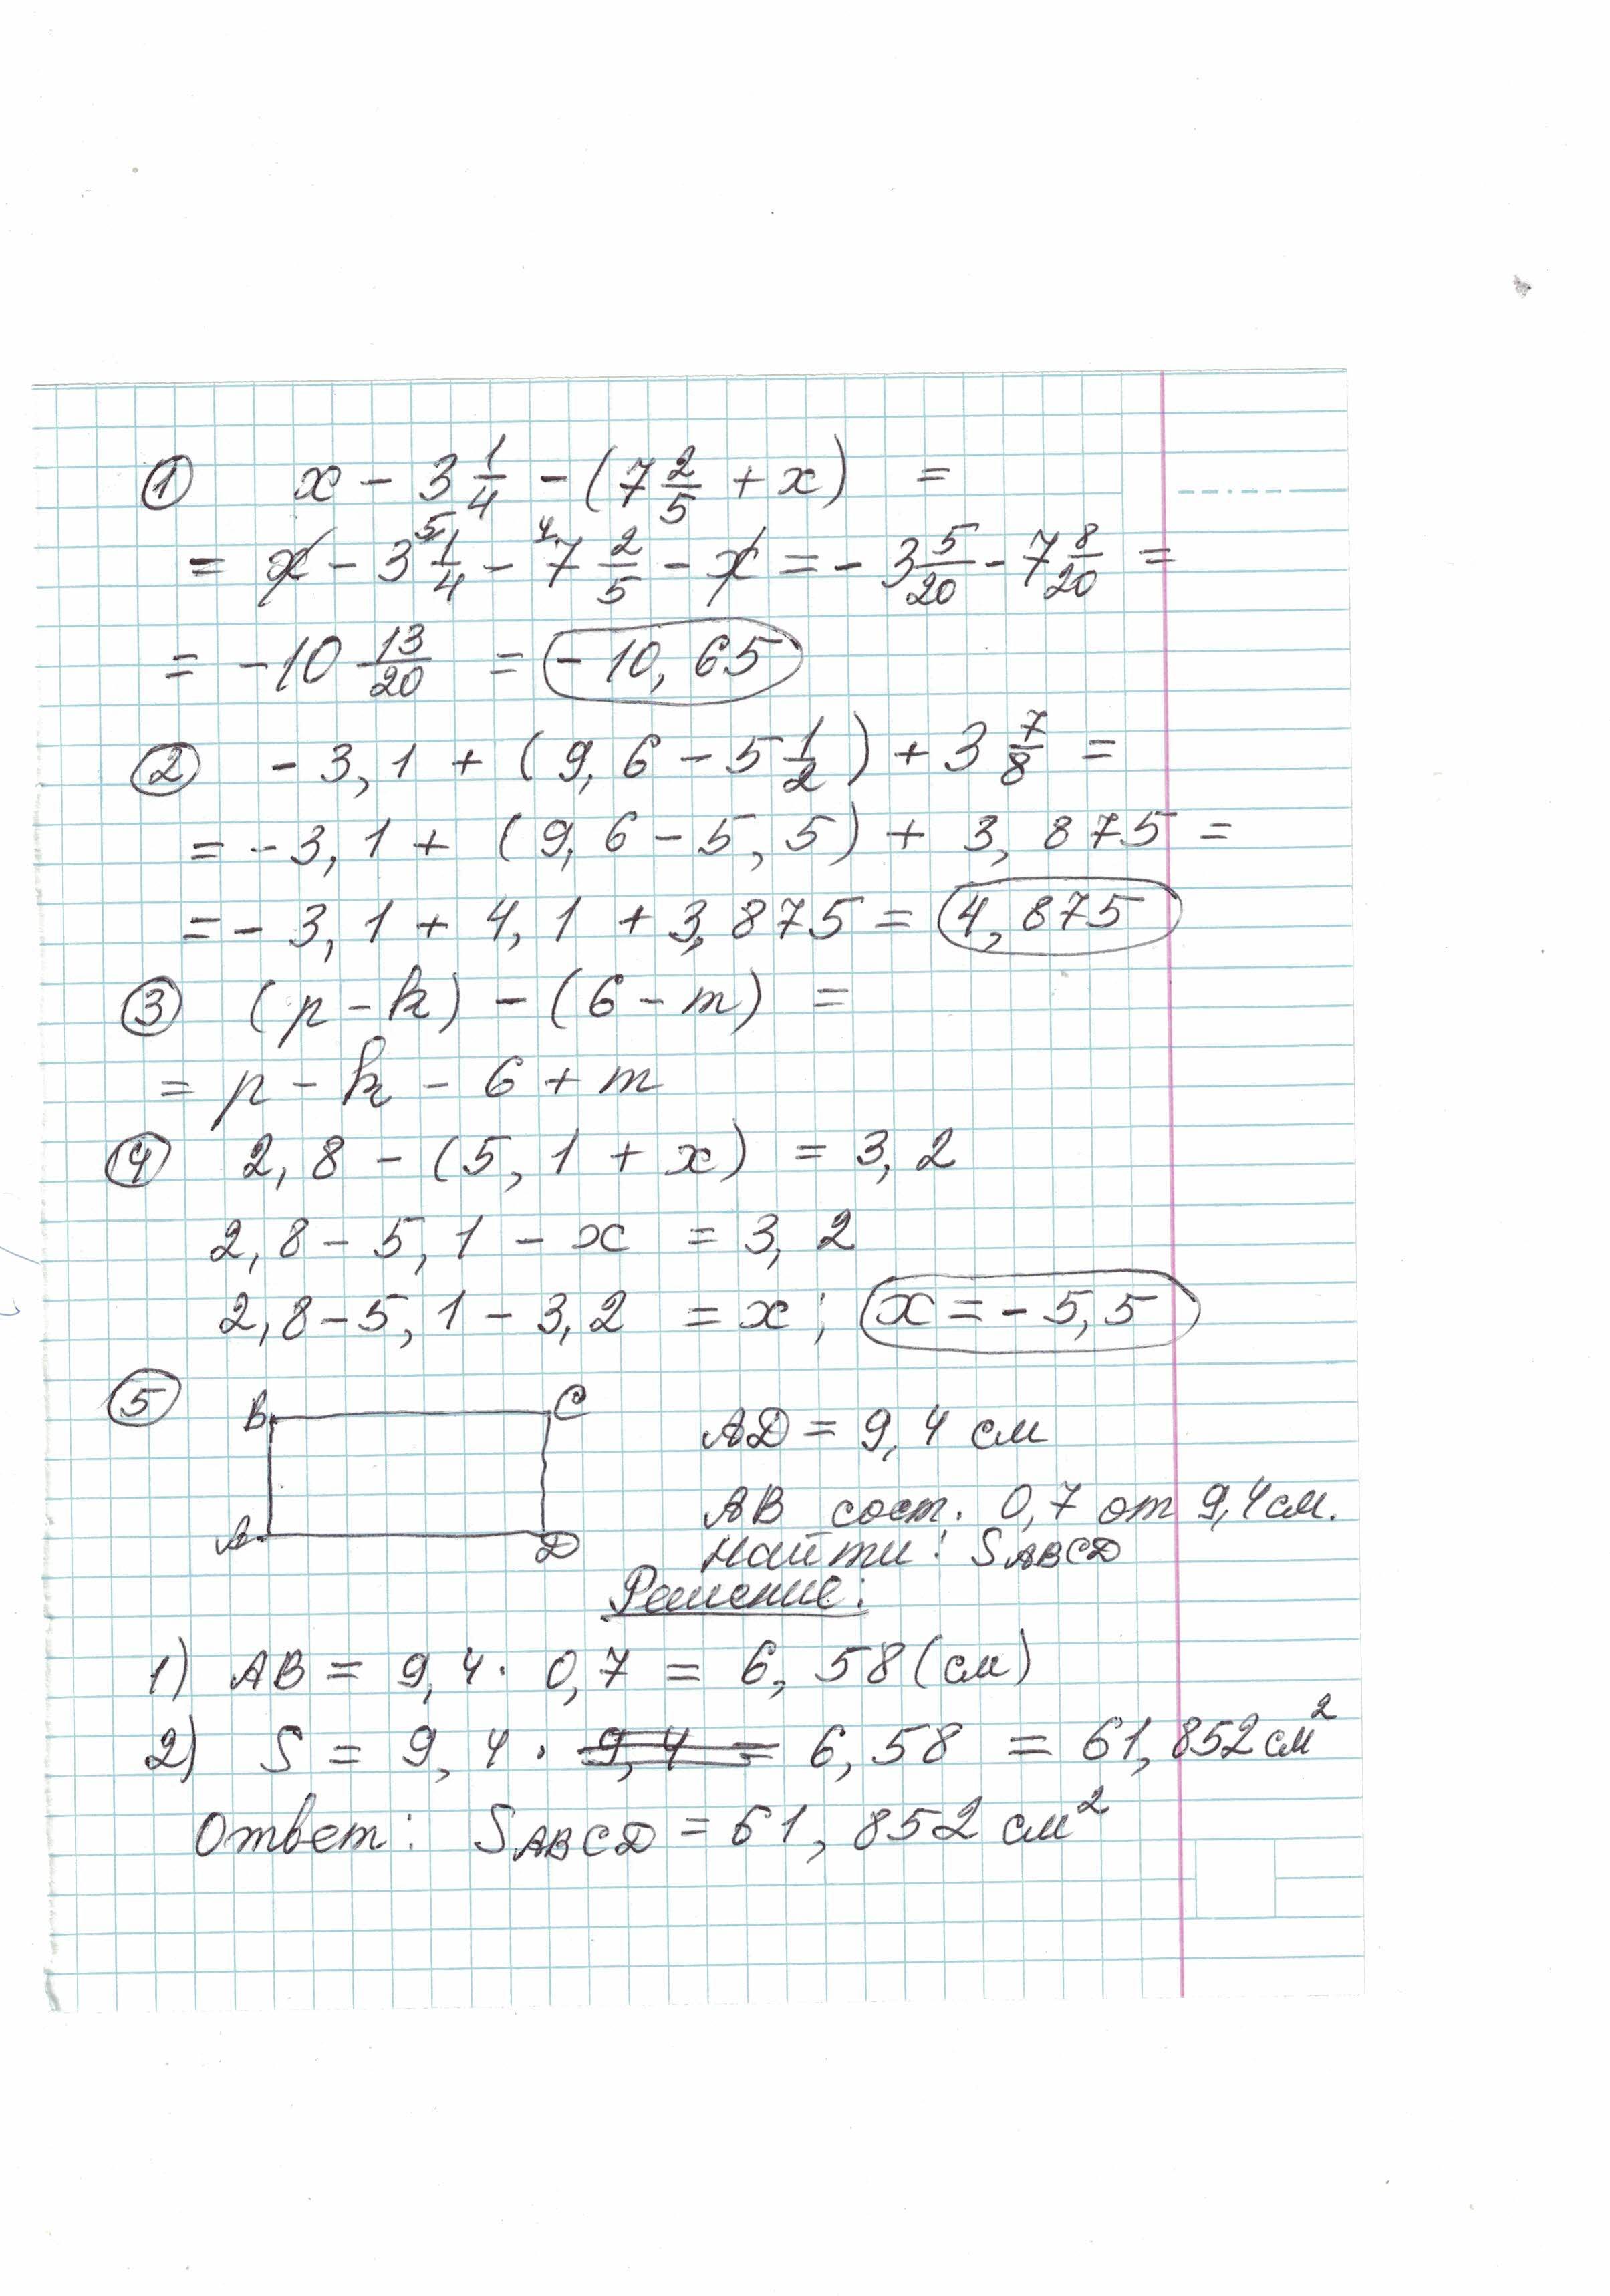 ① x - 3 1/4 - (7 2/5 + x) =
= x - 3 5 1/4 - 4 7 2/5 - x = - 3 5/20 - 7 8/20 =
= -10 13/20 = -10,65
② - 3,1 + (9,6 - 5 1/2) + 3 7/8 =
= - 3,1 + (9,6 - 5,5) + 3,875 =
= - 3,1 + 4,1 + 3,875 = 4,875
③ (p - k) - (6 - m) =
= p - k - 6 + m
④ 2,8 - (5,1 + x) = 3,2
2,8 - 5,1 - x = 3,2
2,8 - 5,1 - 3,2 = x; x = - 5,5
⑤ B C
A D
AD = 9,4 см
AB сост. 0,7 от 9,4 см.
Найти: SABCD
Решение:
1) AB = 9,4 · 0,7 = 6,58 (см)
2) S = 9,4 · 9,4 = 6,58 = 61,852 см²
Ответ: SABCD = 61,852 см²